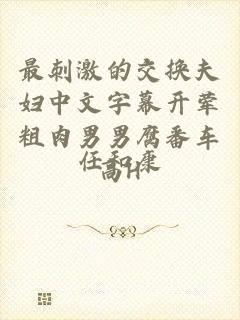 最刺激的交换夫
妇中文字幕开荤
粗肉男男腐番车
任和康
高H